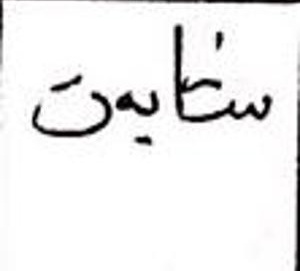 ستایەت